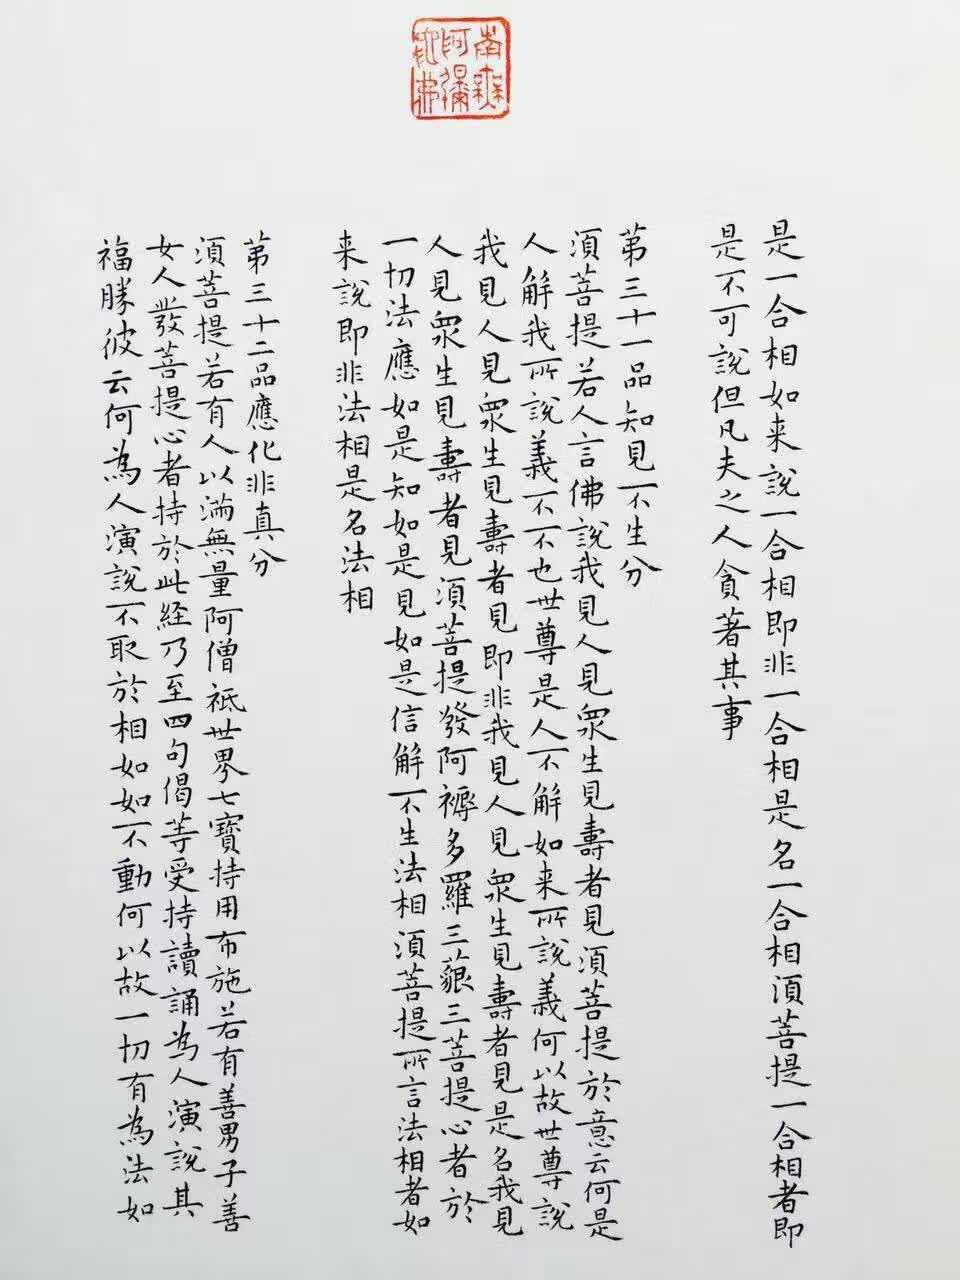 南無阿彌陀佛
是一合相如来說一合相即非一合相是名一合相須菩提一合相者即
是不可說但凡夫之人貪著其事
第三十一品知見不生分
須菩提若人言佛說我見人見眾生見壽者見須菩提於意云何是
人解我所說義不不也世尊是人不解如来所說義何以故世尊說
我見人見眾生見壽者見即非我見人見眾生見壽者見是名我見
人見眾生見壽者見須菩提發阿褥多羅三藐三菩提心者於
一切法應如是知如是見如是信解不生法相須菩提所言法相者如
来說即非法相是名法相
第三十二品應化非真分
須菩提若有人以滿無量阿僧祇世界七寶持用布施若有善男子善
女人發菩提心者持於此経乃至四句偈等受持讀誦為人演說其
福勝彼云何為人演說不取於相如如不動何以故一切有為法如